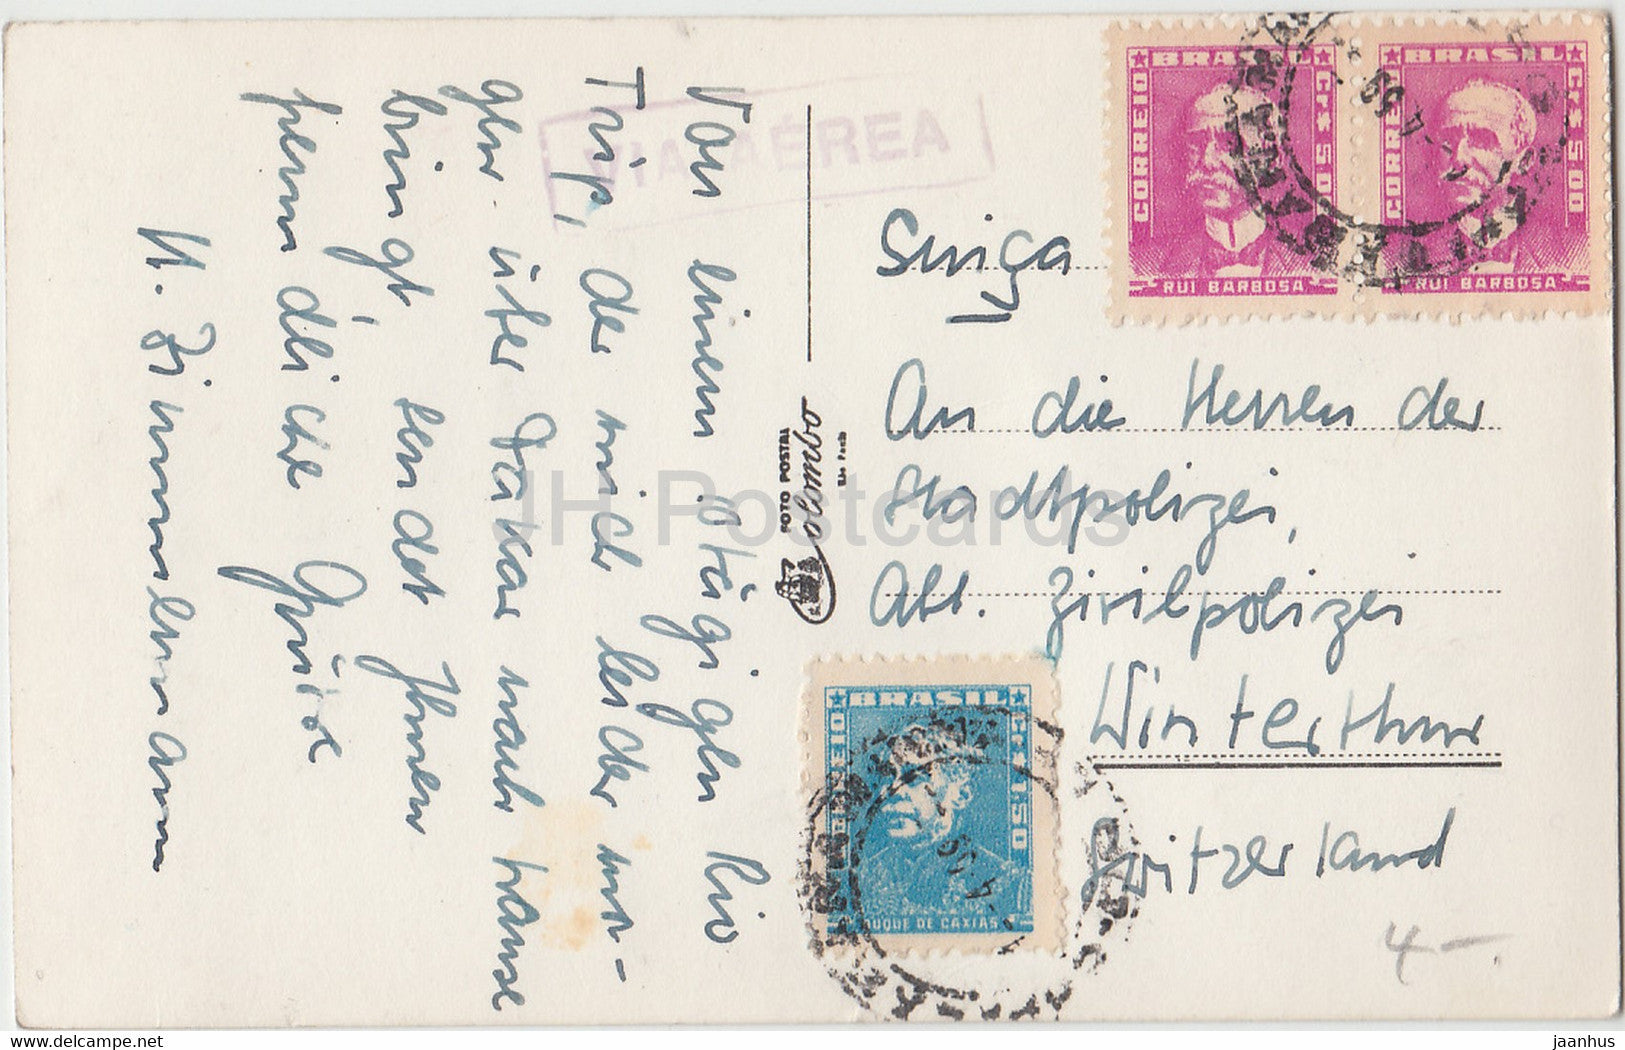 Von einem 8tägigen Rio
Trip, der mich leider mor-
gen über Dakar nach hause
bringt, sendet Ihnen
freundliche Grüsse
H. Zimmermann
VIA AÉREA
FOTO POSTAL
Colombo
São Paulo
BRASIL
CORREIO
Cr$ 5,00
RUI BARBOSA
BRASIL
CORREIO
Cr$ 5,00
RUI BARBOSA
An die Herren der
Stadtpolizei,
Abt. Zivilpolizei
Winterthur
Switzerland
BRASIL
CORREIO
Cr$ 1,50
DUQUE DE CAXIAS
4.-
JH Postcards
www.delcampe.net
jaanhus